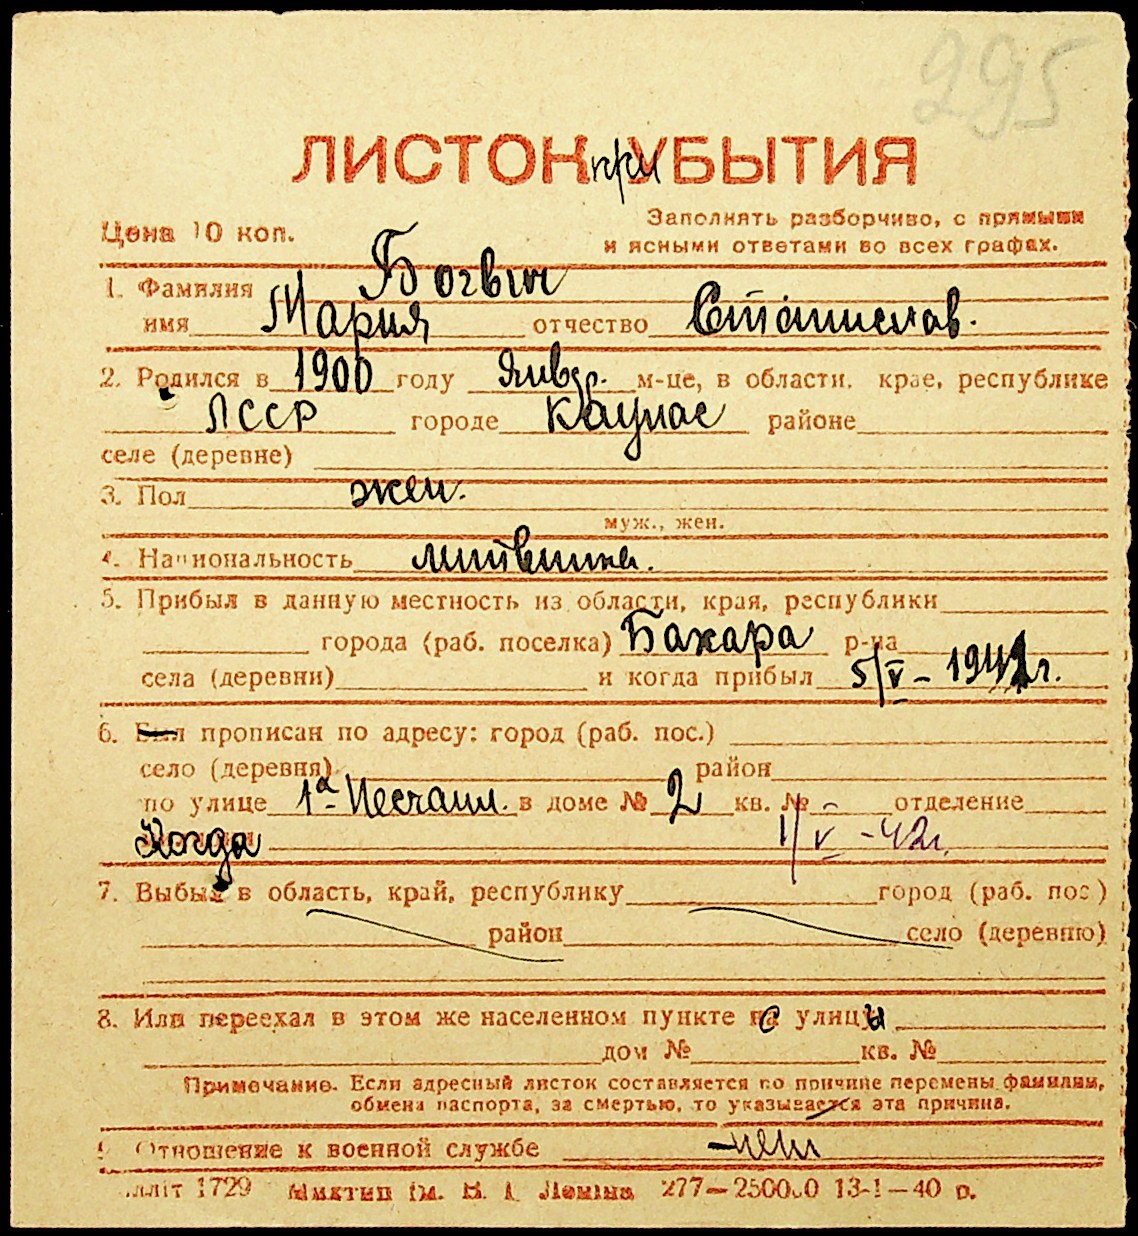 295
ЛИСТОК при УБЫТИЯ
Цена 10 коп.
Заполнять разборчиво, с прямыми
и ясными ответами во всех графах.
1. Фамилия Богвич
имя Мария отчество Станислав.
2. Родился в 1900 году Январ. м-це, в области, крае, республике
ЛССР городе Каунас районе
селе (деревне)
3. Пол жен.
муж., жен.
4. Национальность литвинка.
5. Прибыл в данную местность из области, края, республики
города (раб. поселка) Бахара р-на
села (деревни) и когда прибыл 5/V – 1942 г.
6. Был прописан по адресу: город (раб. пос.)
село (деревня) район
по улице 1а- Песчан. в доме № 2 кв. № - отделение
Когда 1/V - 42 г.
7. Выбыл в область, край, республику город (раб. пос)
район село (деревню)
8. Или переехал в этом же населенном пункте с улицы
дом № кв. №
Примечание. Если адресный листок составляется по причине перемены фамилии,
обмена паспорта, за смертью, то указывается эта причина.
9. Отношение к военной службе – нет
1729 277—250000 13-1—40 р.